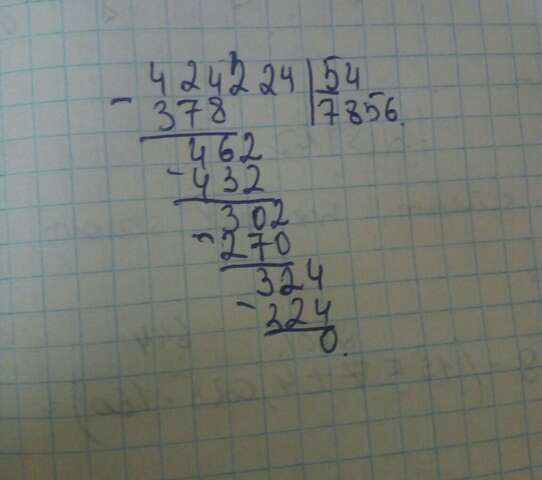 424224 | 54
- 378 | 7856.
462
- 432
302
- 270
324
- 324
0.